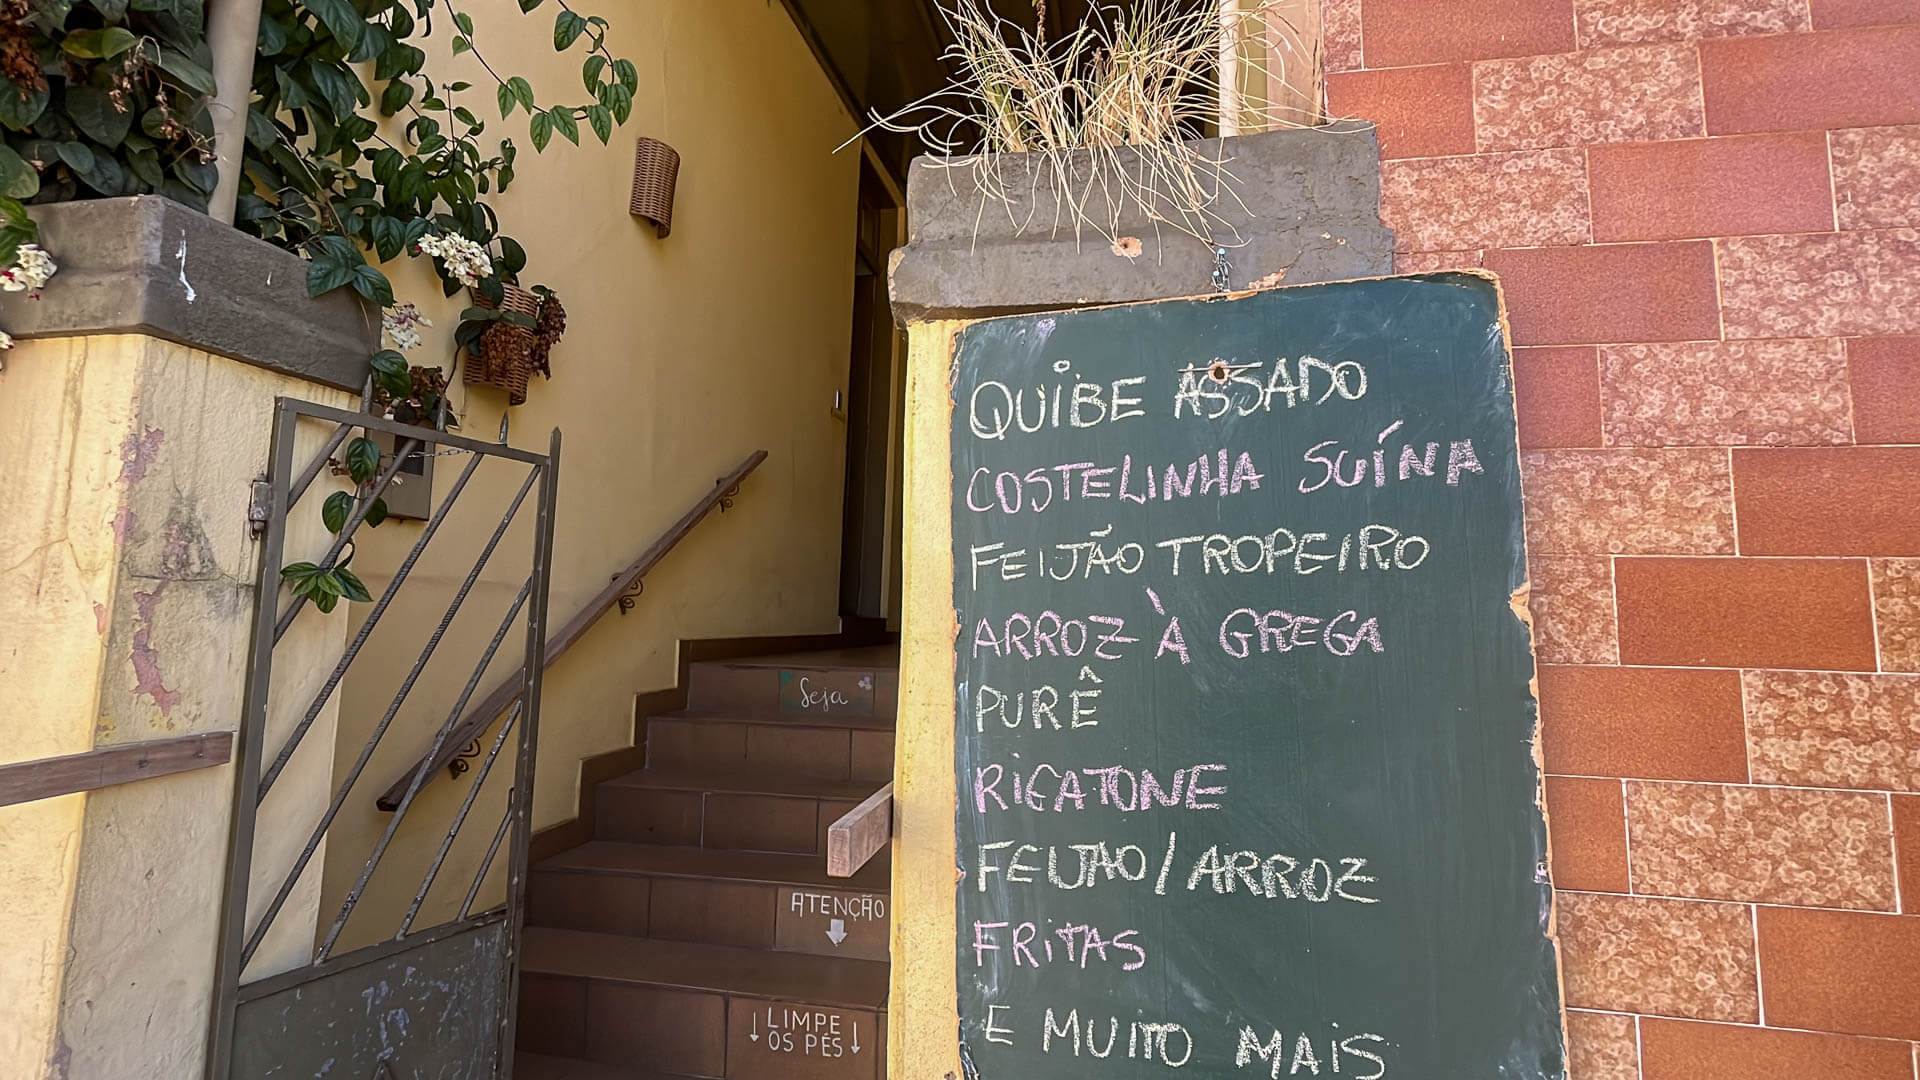 QUIBE ASSADO
COSTELINHA SUÍNA
FEIJÃO TROPEIRO
ARROZ À GREGA
PURÊ
RIGATONE
FEIJAO/ARROZ
FRITAS
E MUITO MAIS
Seja
ATENÇÃO
LIMPE
OS PÉS